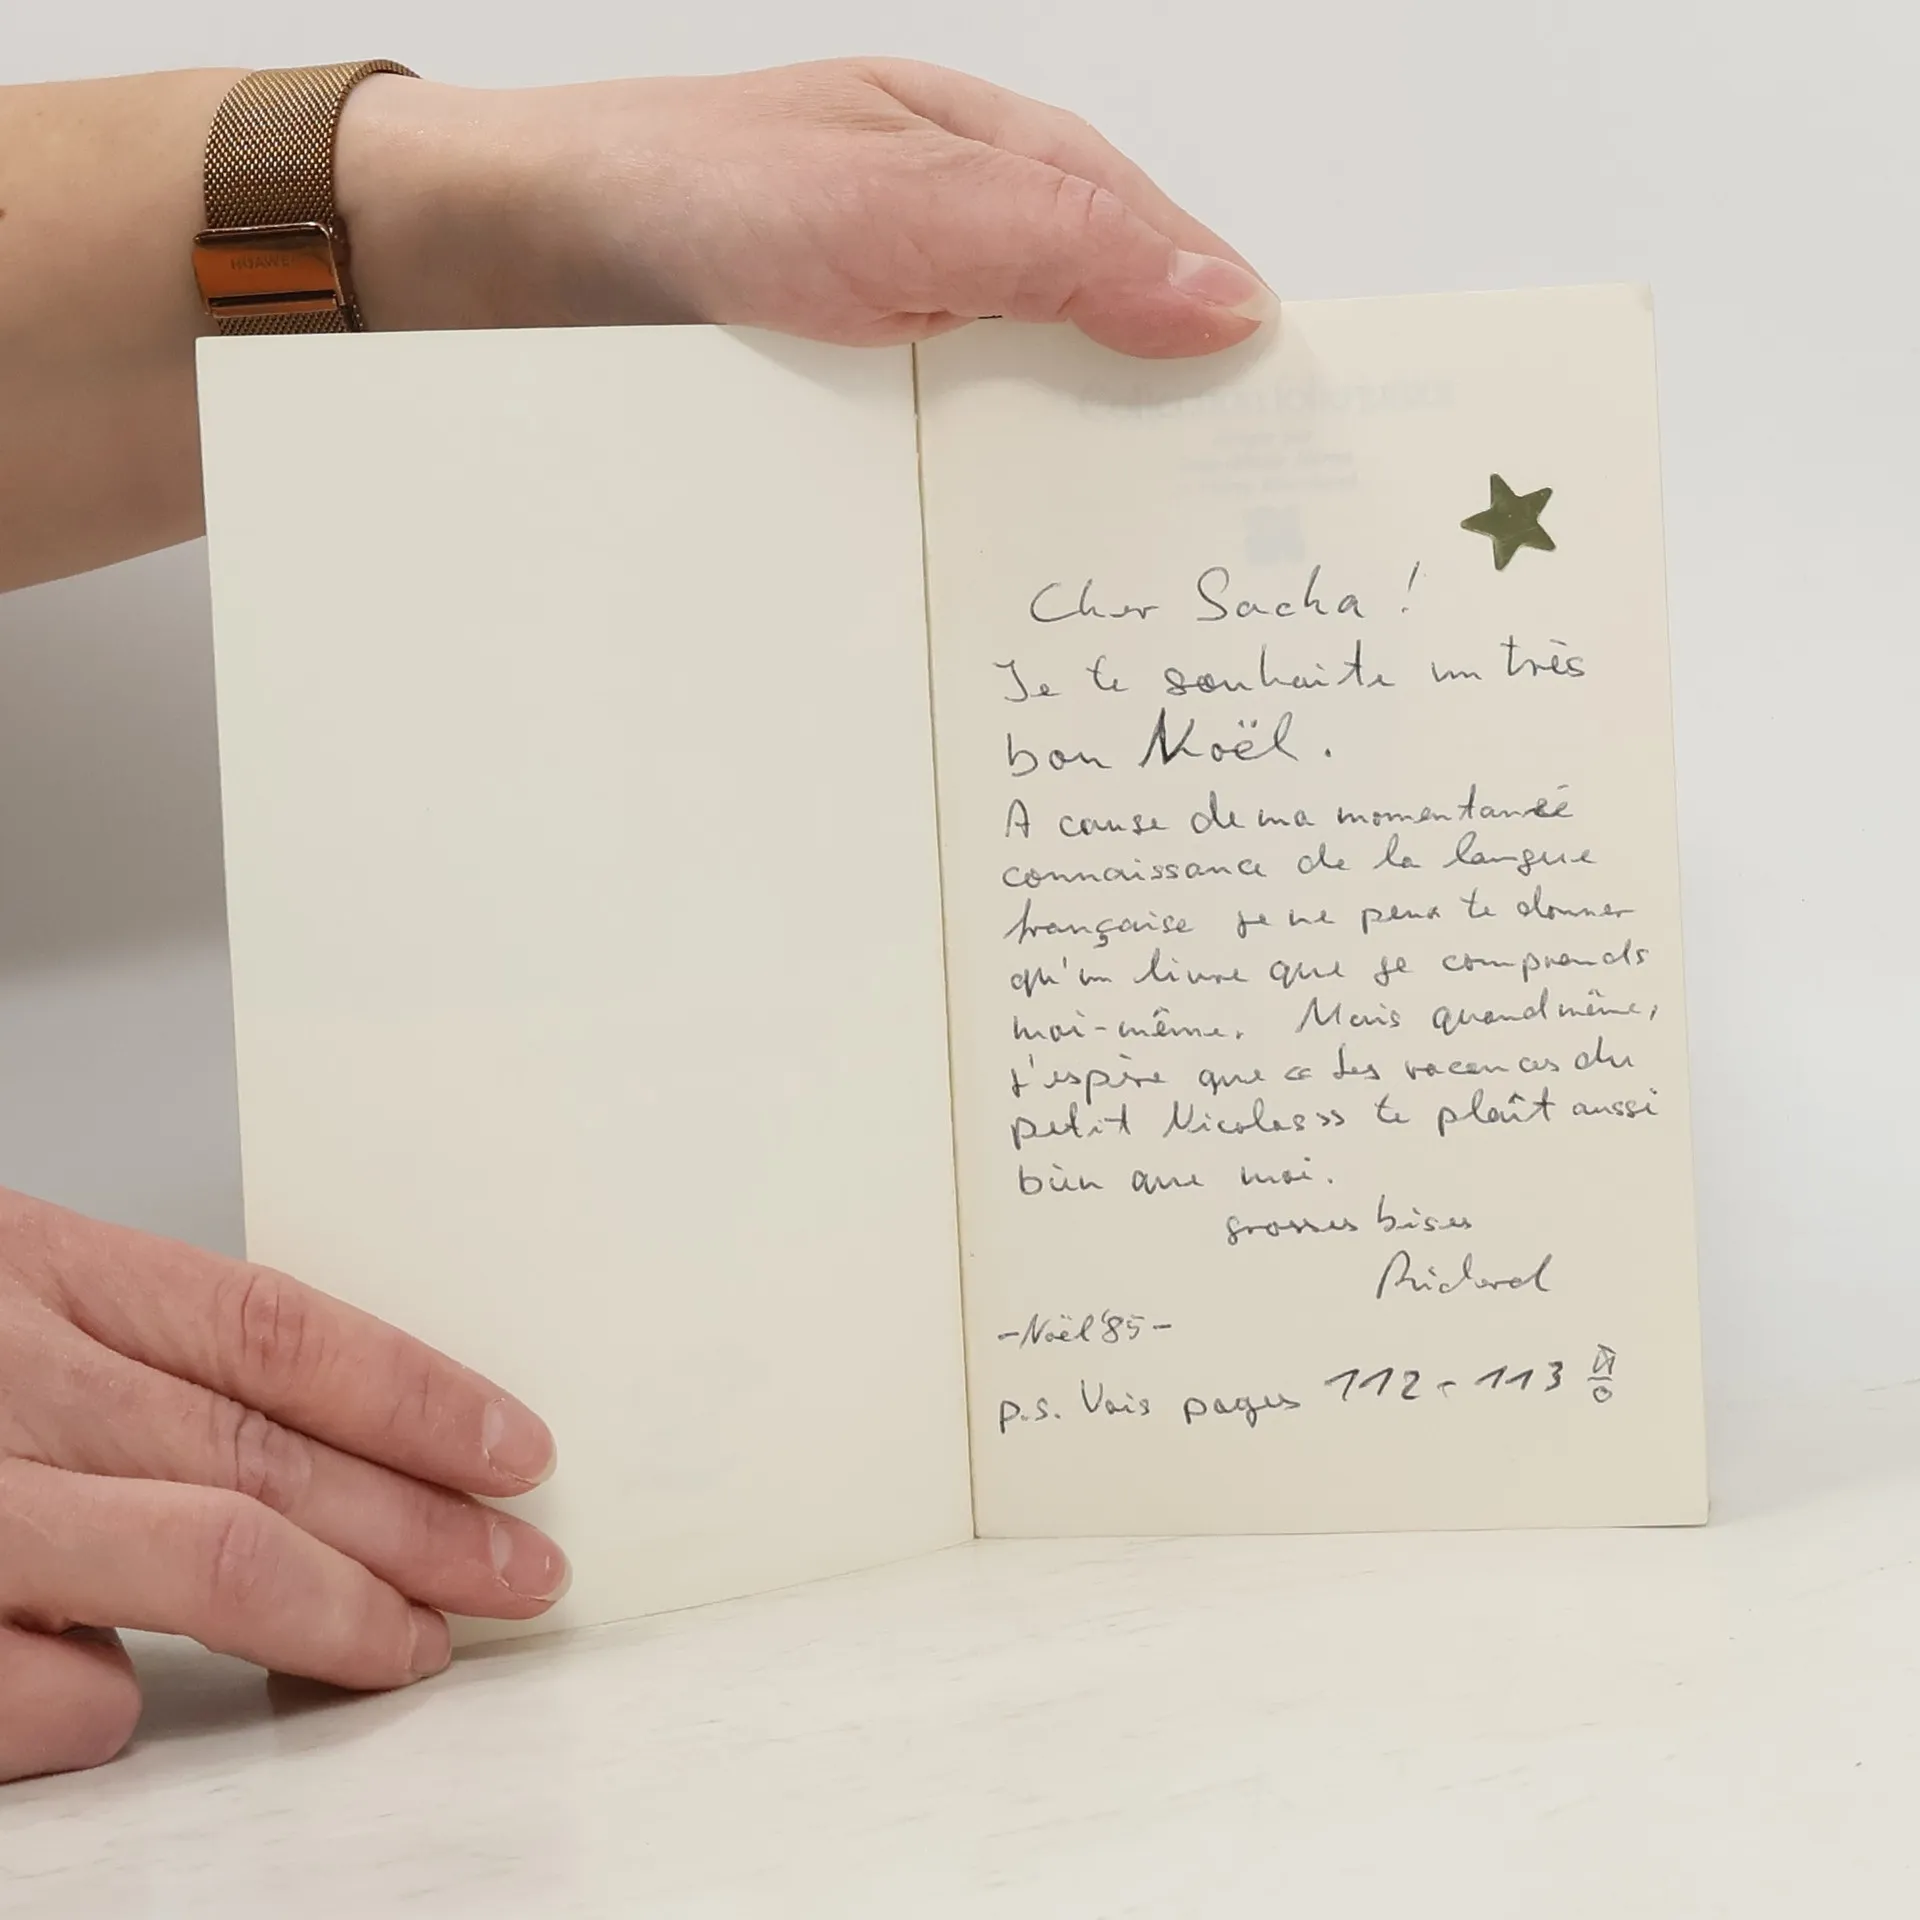 HUAWEI
Cher Sacha !
Je te souhaite un très
bon Noël.
A cause de ma momentanéé
connaissance de la langue
française je ne peux te donner
qu'un livre que je comprends
moi-même. Mais quand même,
j'espère que « Les vacances du
petit Nicolas» te plaît aussi
bien que moi.
grosses bises
Richard
-Noël '85-
p.s. Vois pages 112 - 113